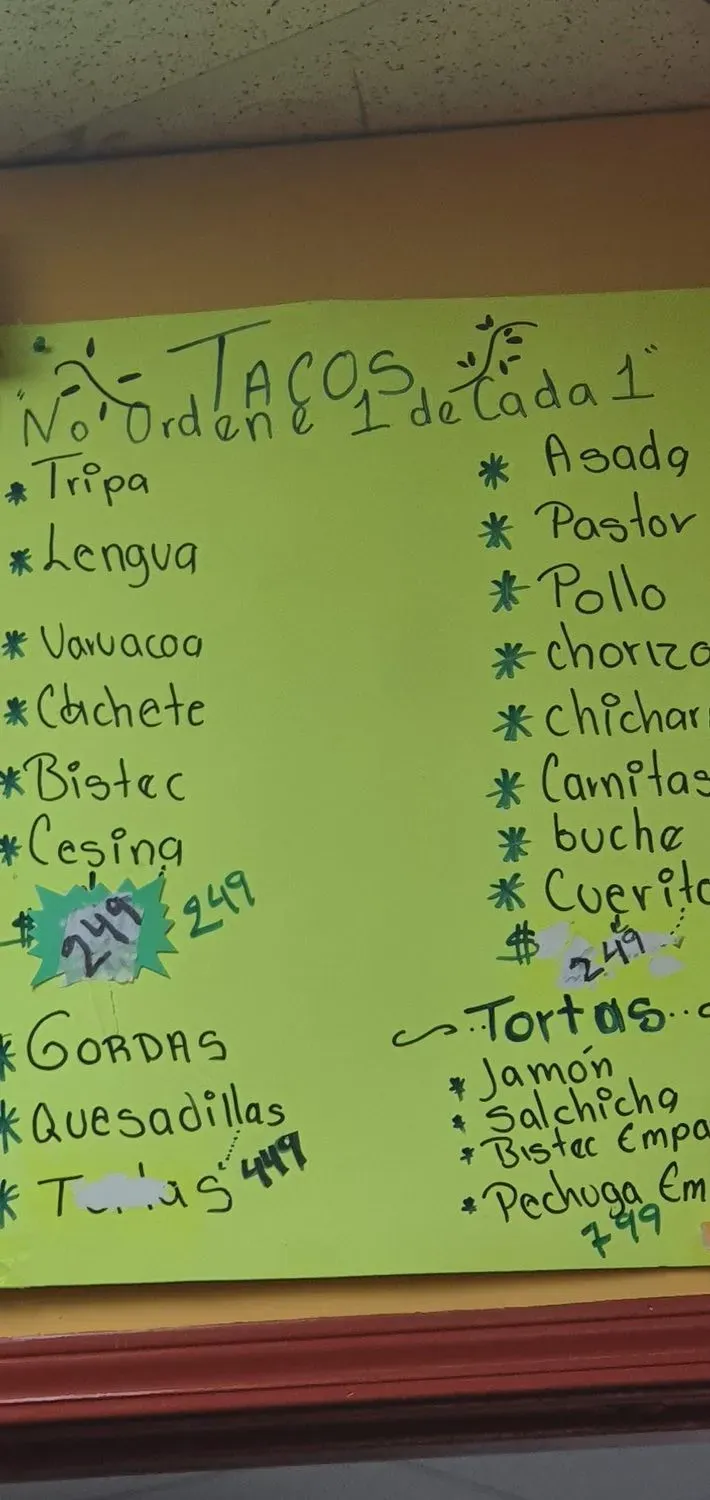 TACOS
"No Ordene 1 de Cada 1"
* Tripa
* Lengua
* Varvacoa
* Cachete
* Bistec
* Cesina
$ 249 249
* Asada
* Pastor
* Pollo
* chorizo
* chichar
* Carnitas
* buche
* Cuerito
$ 249
* GORDAS
* Quesadillas
* T as 449
Tortas
* Jamón
* Salchicha
* Bistec Empa
* Pechuga Em
799